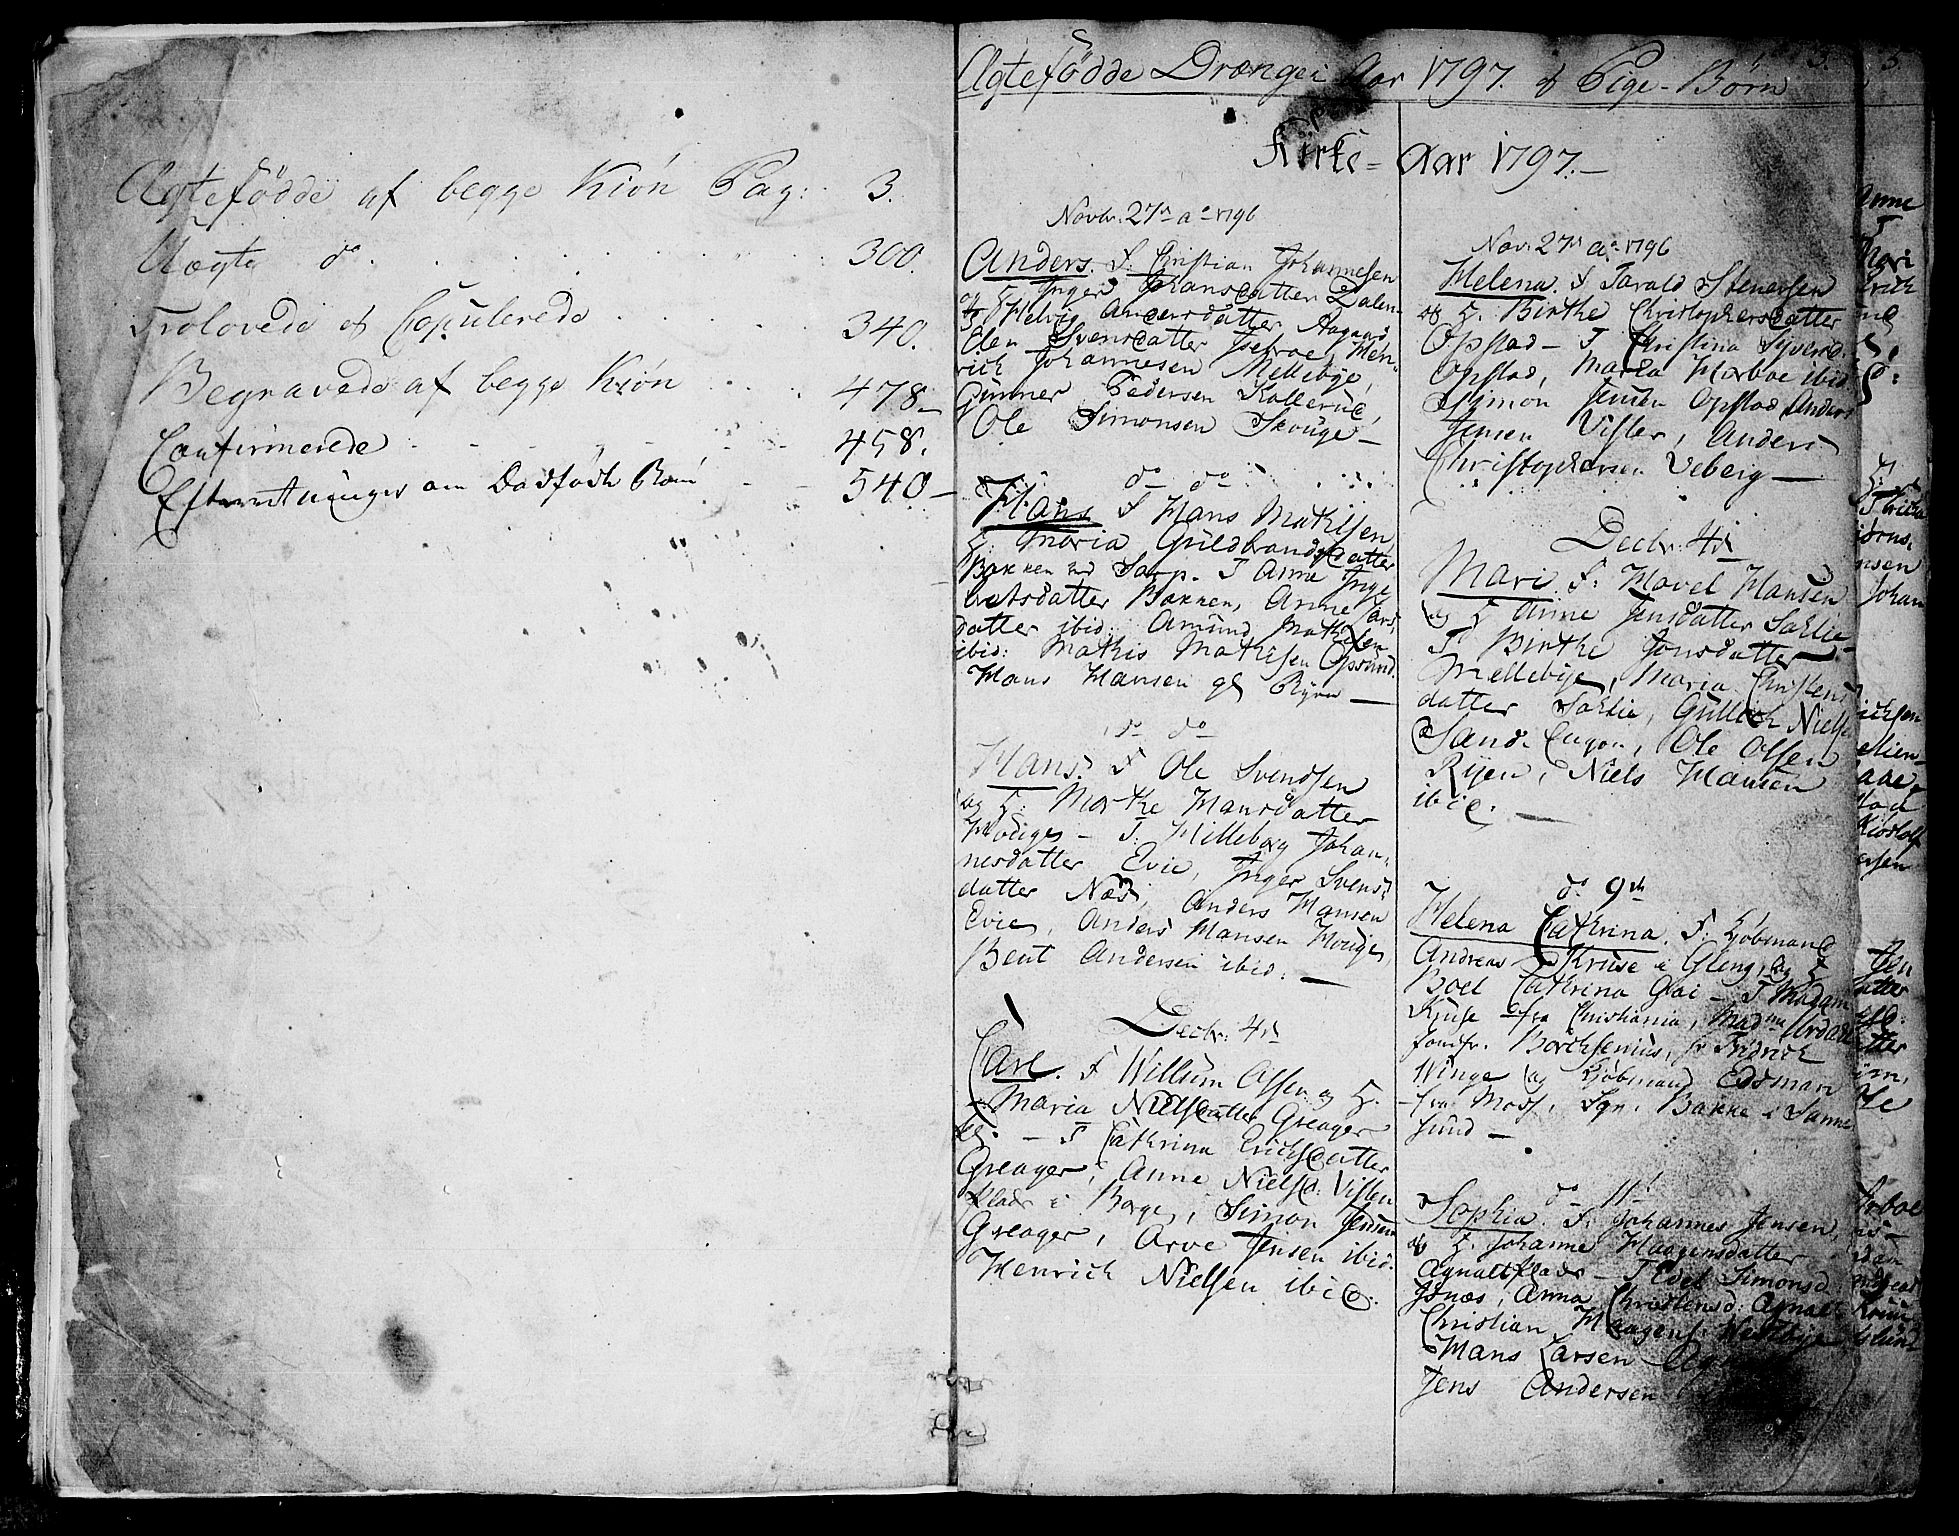 Ægtefödde af begge Kiön Pag: 3.
Uægte do. 300.
Trolovede et Copulerede 340.
Begravede af begge Kiön 478
Confirmerede 458.
Efterretninger om Dødfödte Børn 540
Ægtefödde Drenge i Aar 1797. et Pige-Börn
3.
Kirke-Aar 1797.
Novbr. 27de ao 1796
Anders. F. Christian Johannesen
og H. Inger Hansdatter Dalen
T Helvig Andersdatter Aagaard
Elen Svensdatter Isebroe, Hen-
rich Johannesen Mellebye,
Gunner Pedersen Kollerud,
Ole Simonsen Skouge
do do
Hans F Hans Mathisen
H. Maria Guldbrandsdatter
Bakken ved Sarp. T Anne Inge
bretsdatter Bakken, Anne Lars
datter ibid: Amund Mathisen
ibid: Mathis Mathisen Opsund
Hans Hansen gl Ryen
do do
Hans. F Ole Svendsen
og H: Marthe Hansdatter
Houges - T. Hilleborg Johan-
nesdatter Evie, Inger Svens
datter Næs, Anders Hansen
Evie, Anders Hansen Houge,
Bent Andersen ibid.
Decbr: 4de
Carl. F Willum Olsen og H.
Maria Nielsdatter Greager
T Cathrina Erichsdatter
Greager, Anne Nielsd: Visten
Klade i Borge, Simon Jensen
Greager, Arve Jensen ibid.
Henrich Nielsen ibid.
Nov: 27de ao 1796
Helena. F Tarald Stenersen
og H. Birthe Christophersdatter
Opstad - T Christina Syversd.
Opstad, Maria Horboe ibid
Symon Jensen Opstad, Anders
Jensen Visler, Anders
Christophersen Ueberg
Decbr: 4de
Mari F: Havel Hansen
og H Anne Jensdatter Sahlie
T Birthe Jonsdatter
Mellebye, Maria Christens
datter Sahlie, Gullich Niels
Sand, Ole Olsen
Ryen, Niels Hansen
ibid.
do 9de
Helena Cathrina. F: Kjöbmand
Andreas Kruse i Gleng, og H
Boel Cathrina Gloi - T Madam
Kruse fra Christiania, Madme
Jomfr. Borchsenius, hr Fridrich
Winge og Kjöbmand Edsman
fra Moss, Sgr. Bakke i Sanne
sund
do 11te
Sophia. F: Johannes Jensen,
og H. Johanne Haagensdatter
Agnaltflade - T Edel Simonsd
Isnæs, Anna Christensd: Agnalt
Christian Haagens: Hestehye
Hans Larsen
Jens Andersen